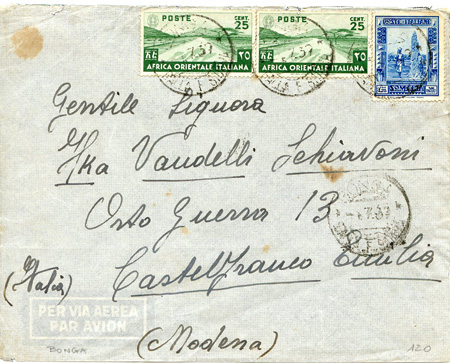 POSTE CENT. 25
AFRICA ORIENTALE ITALIANA
POSTE CENT. 25
AFRICA ORIENTALE ITALIANA
POSTE ITALIANE
SOMALIA
Gentile Signora
Ika Vandelli Schiavoni
Orto Guerra 13
Castelfranco Emilia
(Italia)
(Modena)
PER VIA AEREA
PAR AVION
BONGA
120